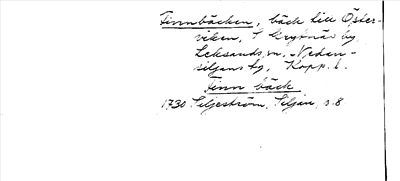 Finnbäcken, bäck till Öster-
viken, S Krypnäs by
Leksands sn. Nedan-
siljans tg, Kopp. l.
Finn bäck
1730 Siljeström, Siljan, s. 8